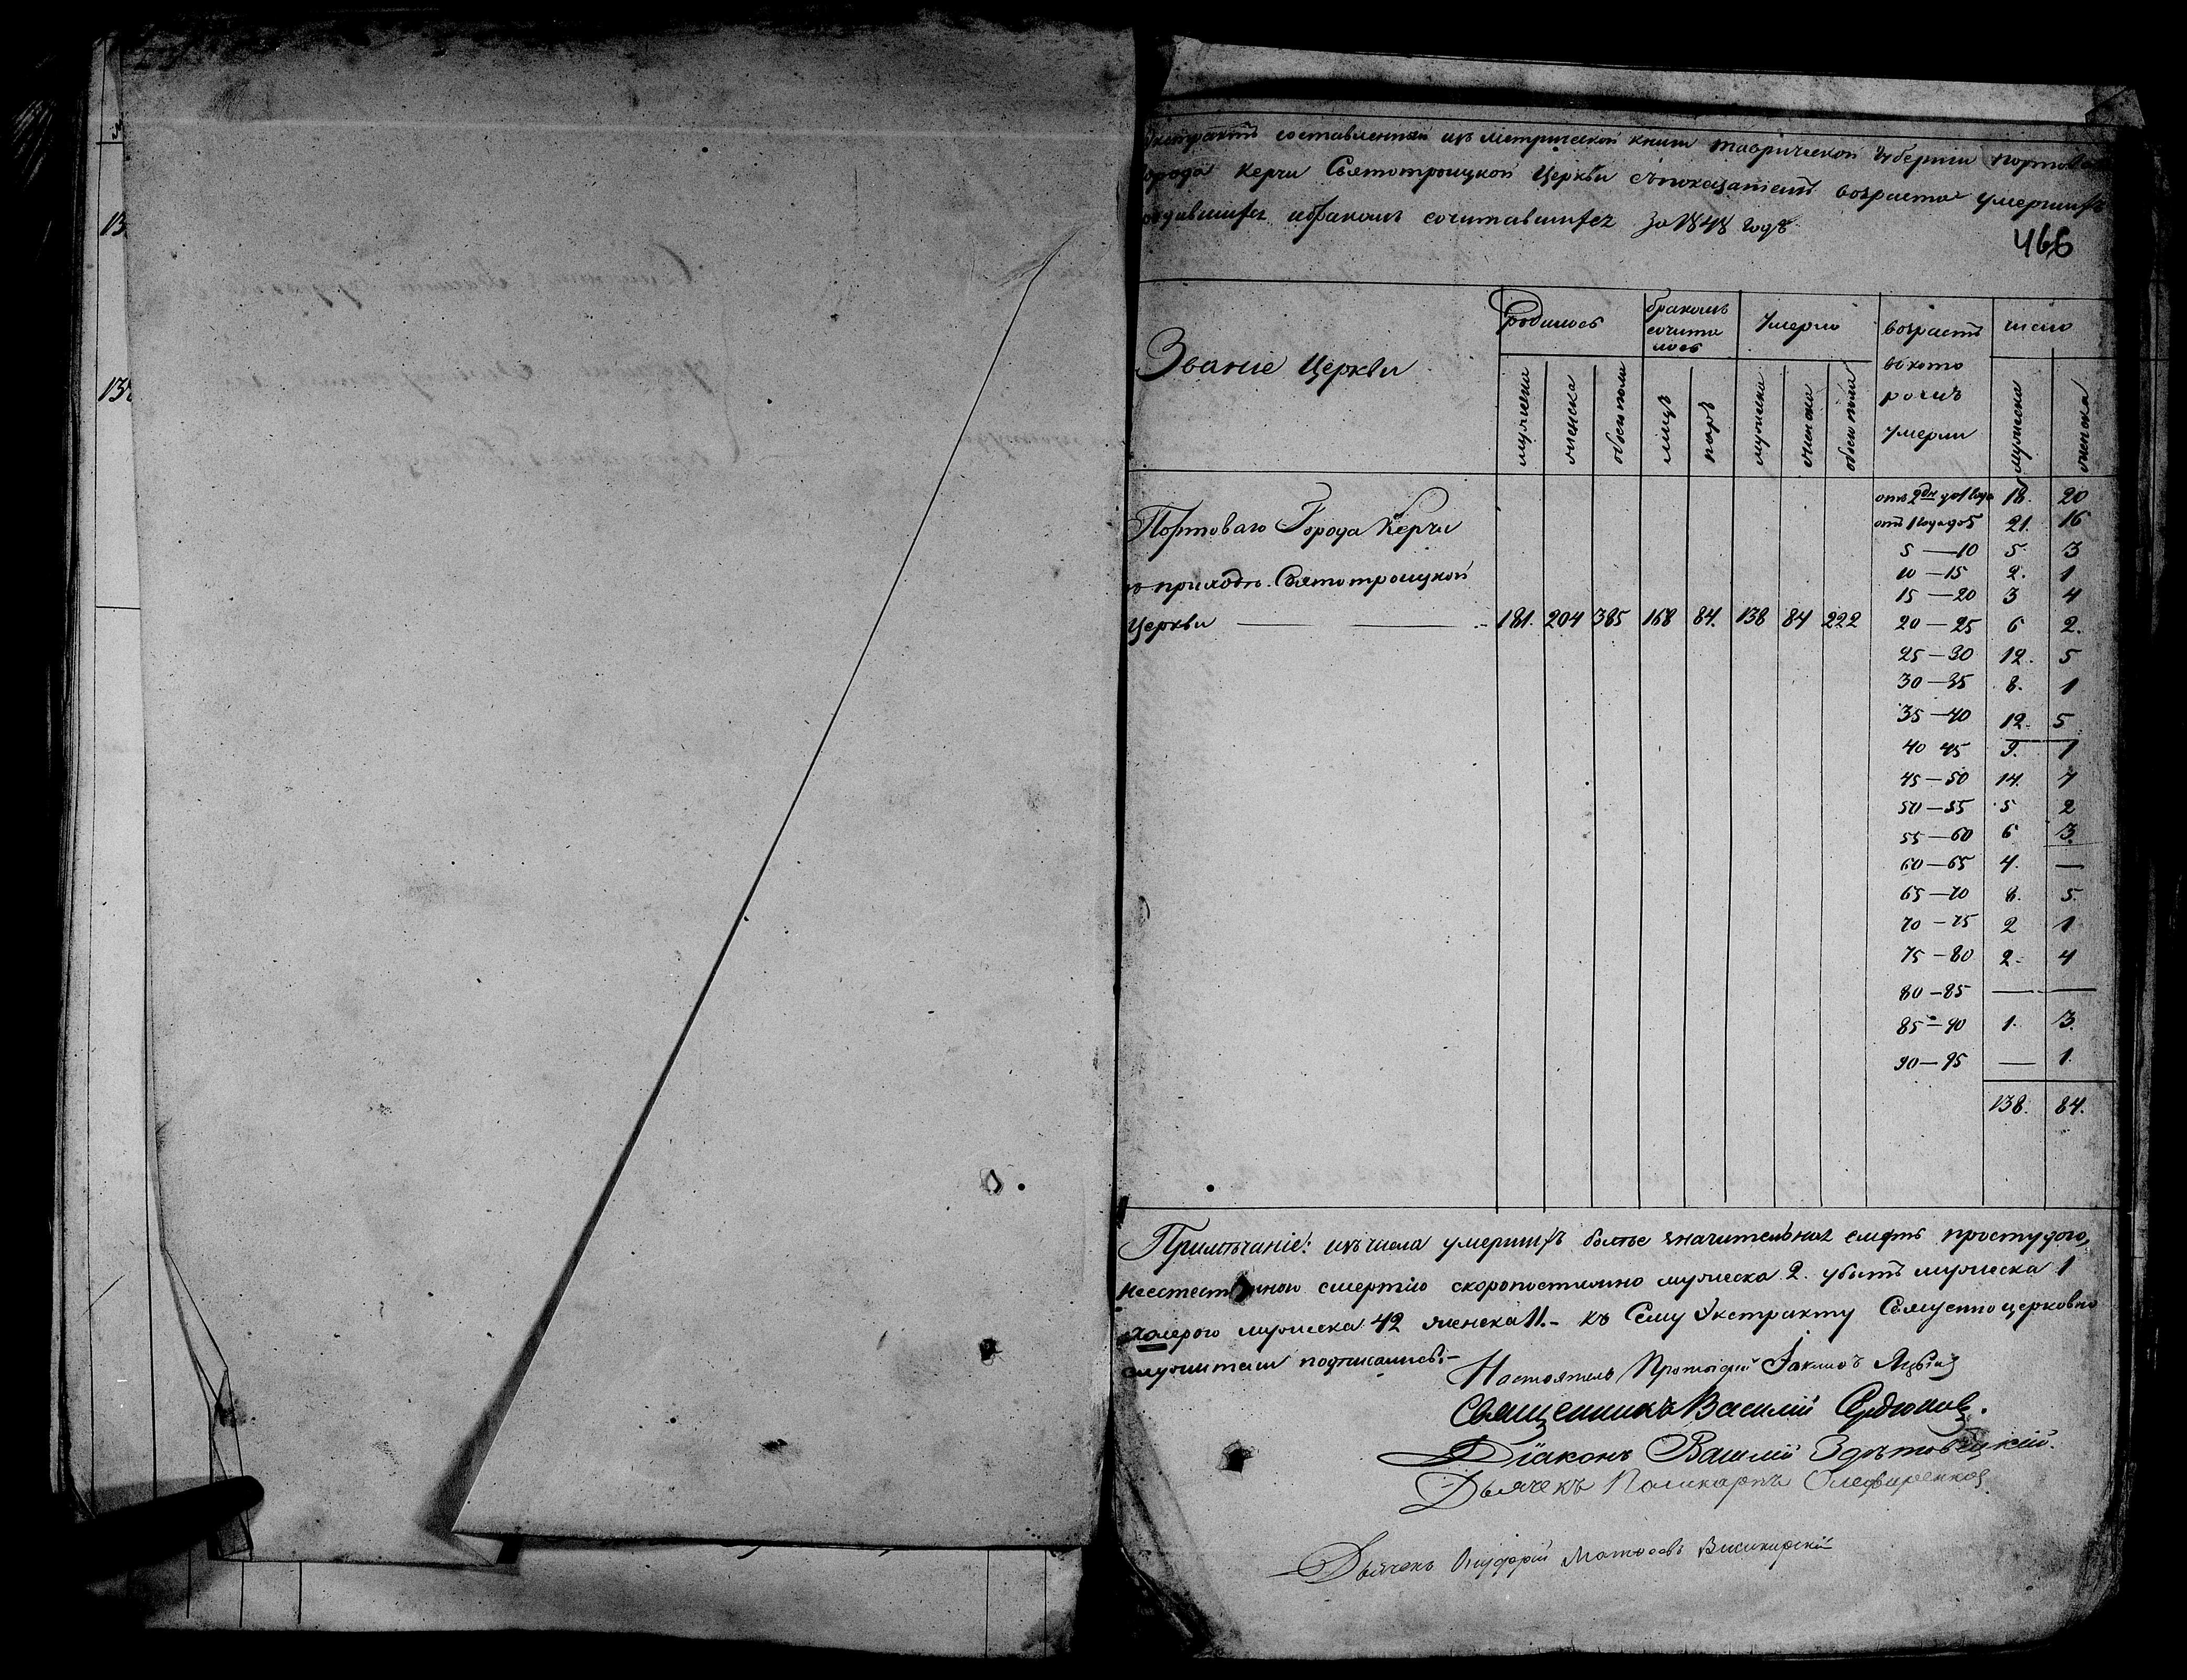 Экстрактъ составленный изъ метрической книги таврической Губерніи портоваго
города Керчи Святотроицкой Церкви съпоказаніемъ возраста умершихъ
родившихся ибракомъ сочитавшихся за 1848 годъ
466
Званіе Церкви
родилось
бракомъ сочита лось
Умерло
возрастъ вкото ромъ умерли
число
мужеска
женска
обоего пола
лицъ
паръ
мужеска
женска
обоего пола
мужеска
женска
Портоваго Города Керчи
въ приходѣ Святотроицкой
Церкви 181. 204 385 168 84. 138 84 222
отъ 2 дн до 1 года 18. 20
отъ 1 года до 5 21. 16
5 — 10 5. 3
10 — 15 2. 1
15 — 20 3 4
20 — 25 6 2.
25 — 30 12. 5
30 — 35 8. 1
35 — 40 12. 5
40 45 9. 1
45 — 50 14. 7
50 — 55 5 2
55 — 60 6 3.
60 — 65 4. —
65 — 70 8. 5.
70 — 75 2 1
75 — 80 2. 4
80 — 85 — —
85 — 90 1. 3.
90 — 95 — 1.
138. 84.
Примѣчаніе: изъ числа умершихъ болѣе значительная смерть простудою,
неестественною смертію скоропостижно мужеска 2. убитъ мужеска 1
холерою мужеска 42 женска 11. – къ Сему Экстракту Священноцерковно
служители подписались: –
Настоятель Протоіерей Іакимъ
Священникъ Василій Сердюковъ.
Діаконъ Василій
Дьячекъ Поликарпъ
Дьячекъ Матвѣевъ
13